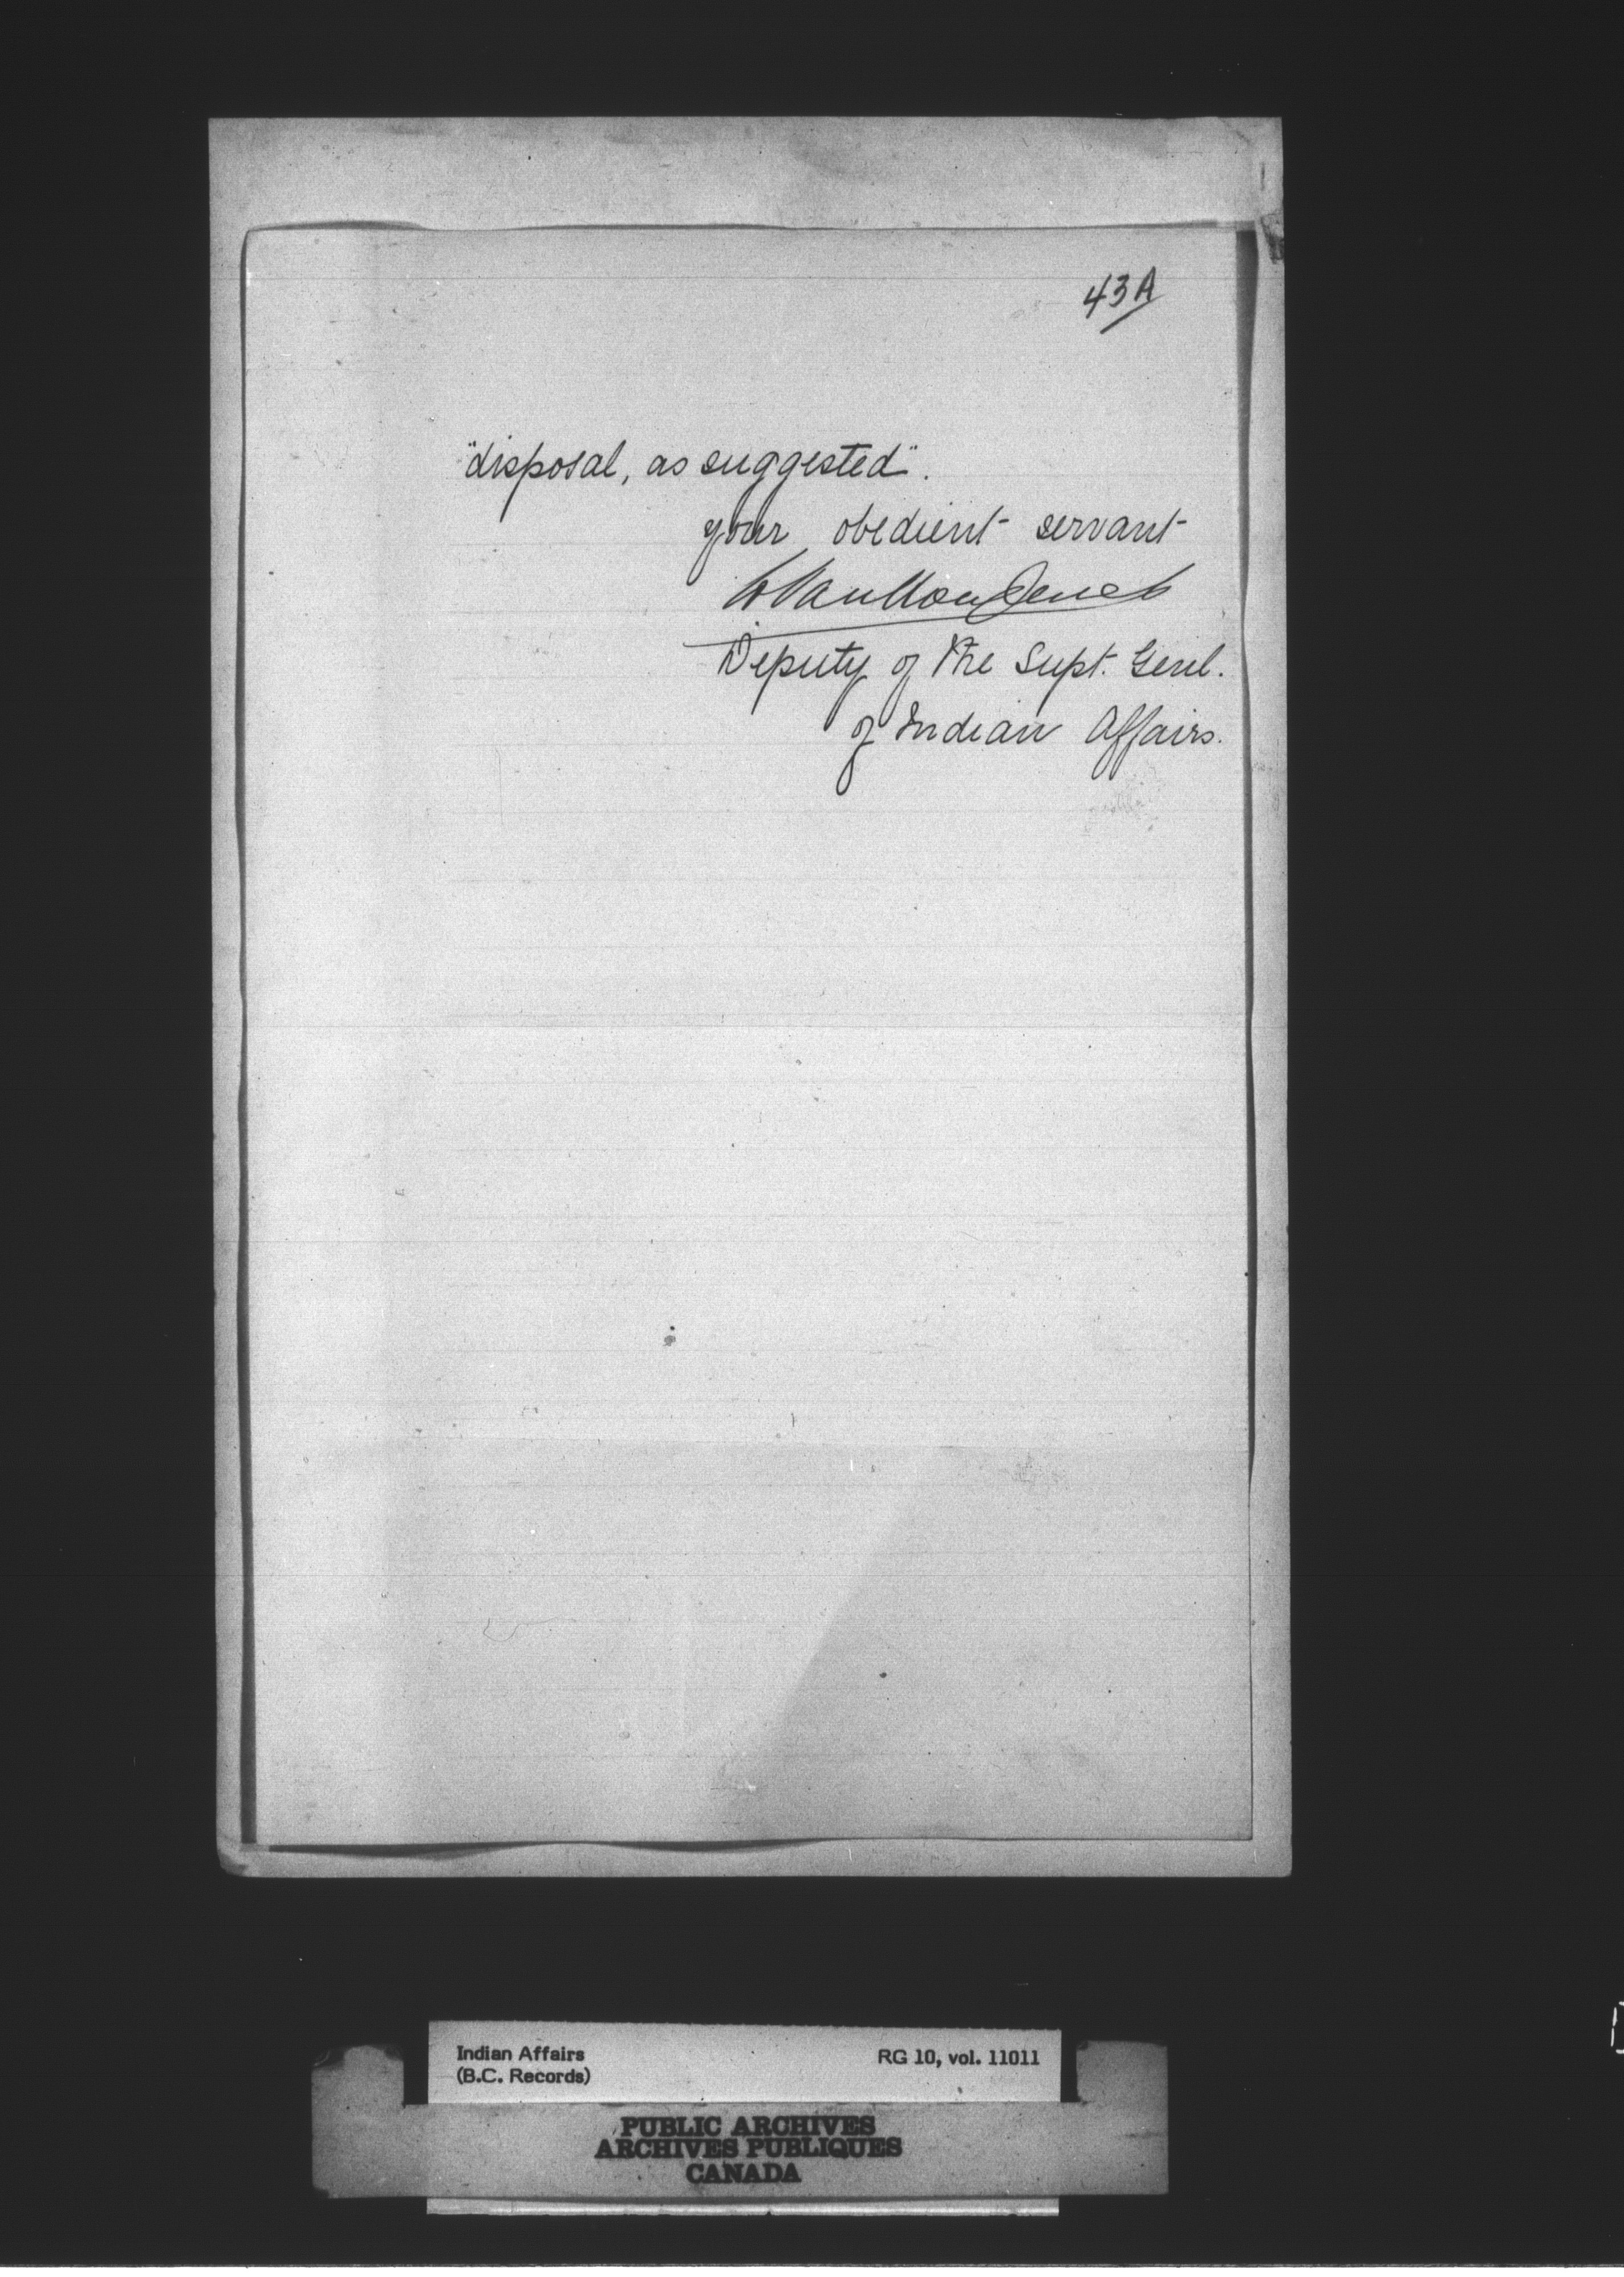 43A
"disposal, as suggested".
your obedient servant
L Vankoughnet
Deputy of the Supt. Genl.
of Indian Affairs.
Indian Affairs
(B.C. Records)
RG 10, vol. 11011
PUBLIC ARCHIVES
ARCHIVES PUBLIQUES
CANADA